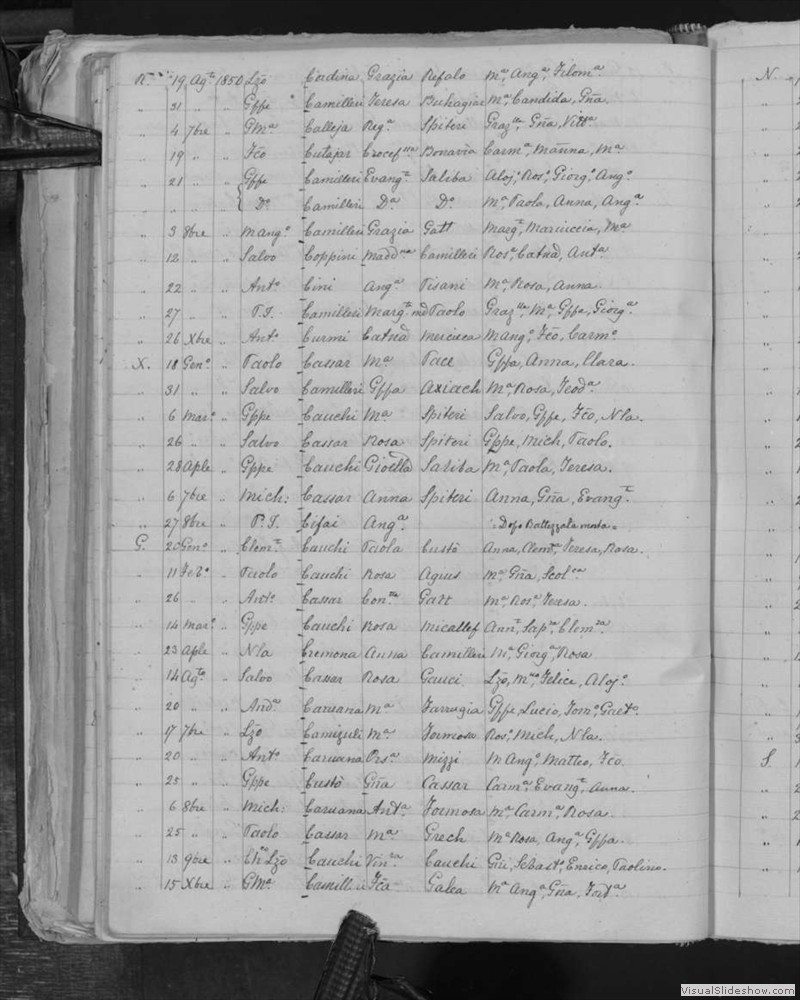 R. 19 Agto 1850 Lzo Cordina Grazia Refalo Ma Anga, Filoma
" 31 " " Gppe Camilleri Teresa Buhagiar Ma Candida, Gña
" 4 7bre " GMa Calleja Rega Spiteri Grazlla Gña, Vitta
" 19 " " Fco Cutajar Crocefssa Bonavia Carma, Ma
" 21 " " Gppe Camilleri Evangta Saliba Alojo Roso, Giorgo Ango
" " " " Do Camilleri Da Do Ma Paola, Anna, Anga
" 3 8bre " Mango Camilleri Grazia Gatt Margta, Mariuccia, Ma
" 12 " " Salvo Coppini Maddna Camilleri Rosa, Catnã, Anta
" 22 " " Anto Cini Anga Pisani Ma, Rosa, Anna
" 27 " " P.I. Camilleri Margta Paolo Grazlla, Ma, Gppe, Giorga
" 26 Xbre " Anto Curmi Catnã Muscieca Mango, Fco, Carmo
X. 18 Geno " Paolo Cassar Ma Pace Gppa, Anna, Clara.
" 31 " " Salvo Camilleri Gppa Axiach Ma, Rosa, Teoda
" 6 Maro " Gppe Cauchi Ma Spiteri Salvo, Gppe, Fco, Nla.
" 26 " " Salvo Cassar Rosa Spiteri Gppe, Mich, Paolo.
" 28 Aple " Gppe Cauchi Gioella Saliba Ma, Paola, Teresa.
" 6 7bre " Mich: Cassar Anna Spiteri Anna, Gña, Evangta
" 27 8bre " P.I. Cifai Anga = Dopo Battezzata morta =
G. 20 Geno " Clemte Cauchi Paola Custò Anna, Clemta, Teresa, Rosa.
" 11 Febo " Paolo Cauchi Rosa Agius Ma, Gña, Scolca
" 26 " " Anto Cassar Con. Gatt Ma, Rosa, Teresa.
" 14 Maro " Gppe Cauchi Rosa Micallef Annta, Sapza, Clemza
" 23 Aple " Nla Cremona Anna Camilleri Ma, Giorga, Rosa
" 14 Agto " Salvo Cassar Rosa Gauci Lzo, Felice, Alojo
" 20 " " Anda Caruana Ma Farrugia Gppe, Lucio, Tomo, Gaeto.
" 17 7bre " Lzo Camizuli Ma Formosa Roso, Mich, Nla.
" 20 " " Anto Caruana Orsa Mizzi M Ango, Matteo, Fco.
" 25 " " Gppe Custò Gña Cassar Carma, Evangta, Anna.
" 6 8bre " Mich: Caruana Anta Formosa Ma, Carma, Rosa.
" 25 " " Paolo Cassar Ma Grech Ma Rosa, Anga, Gppa.
" 13 9bre " Lzo Cauchi Vinza Cauchi Gni, Sebasto, Enrico, Paolino.
" 15 Xbre " GMa Camilleri Fca Galea Ma Anga, Gña, Forta
N.
S.
VisualSlideshow.com